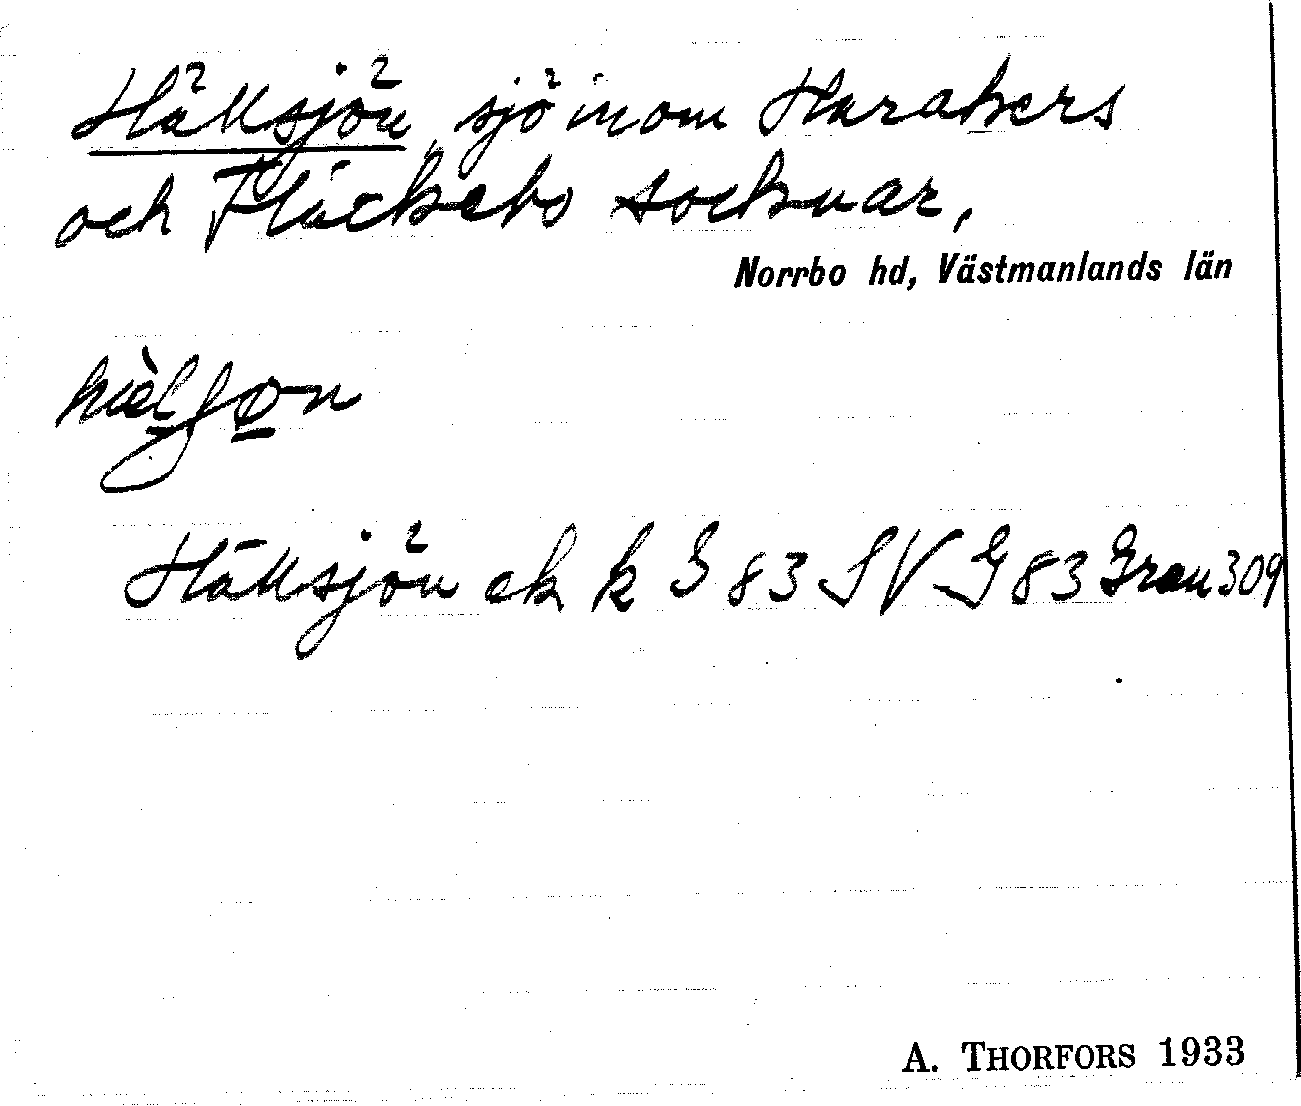 Hällsjön, sjö inom Harakers
och Fläckebo socknar,
Norrbo hd, Västmanlands län
Hällsjön ek k S 83 SV G 83 Gran 309
A. THORFORS 1933